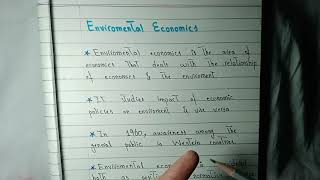 Enviromental Economics
* Enviromental economics is the area of
economics that deals with the relationship
of economics & the enviroment
* IT studies impact of economic
policies on enviroment & vice versa
* In 1960, awareness among the
general public in Western countries
* Enviromental
both as